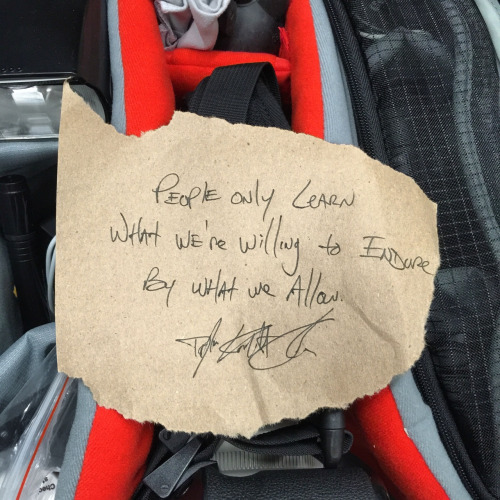 People only Learn
What we're willing to Endure
By what we Allow.